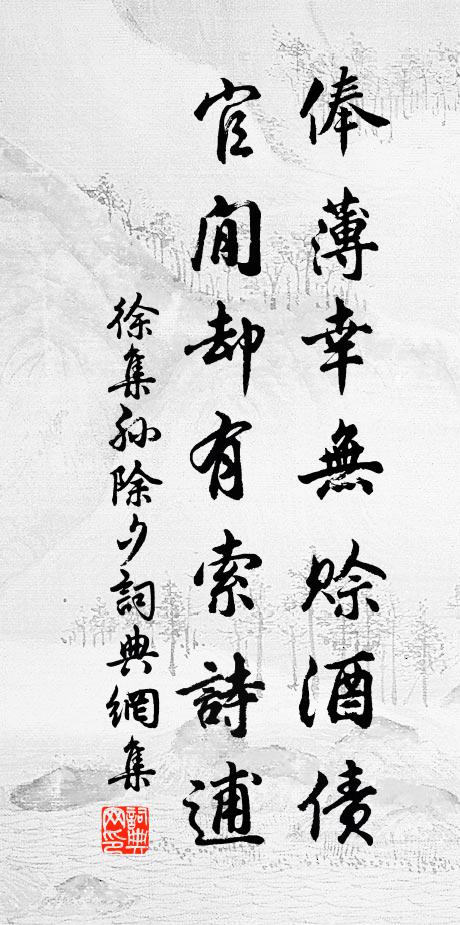 俸薄幸無賒酒債
官閒却有索詩逋
徐集孫除夕詞典網集
詞典網印